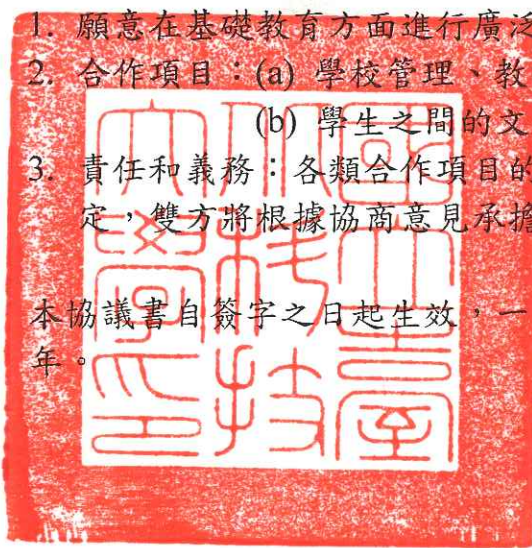 1. 願意在基礎教育方面進行廣泛
2. 合作項目：(a) 學校管理、教
(b) 學生之間的文
3. 責任和義務：各類合作項目的
定，雙方將根據協商意見承擔
本協議書自簽字之日起生效，一
年。
國立臺
北科技
大學印